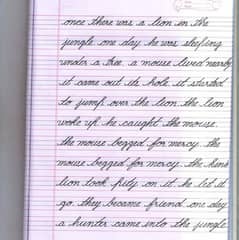 once there was a lion in the
jungle one day he was sleeping
under a tree. a mouse lived nearby
it came out its hole. it started
to jump over the lion. the lion
woke up. he caught the mouse.
the mouse begged for mercy. the
mouse begged for mercy. the kind
lion took pity on it. he let it
go. they became friend. one day
a hunter came into the jungle